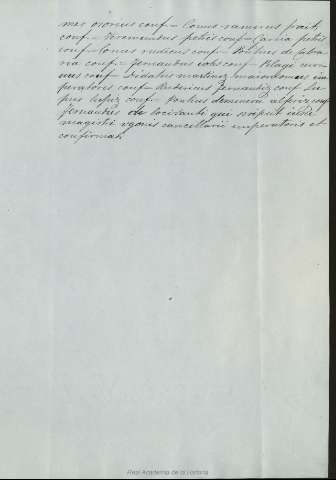 mes osorius conf – Comes ramirus froit
conf – Veremundus petriz conf – Garcia petriz
conf – Comes rudicus conf – Poncius de
ria conf – fernandus iohs conf – Pelagi
nus conf – Didacus martinz maiordomus im
peratoris conf – Rudericus fernandiz conf Lu
pus lupiz conf – Poncius de minerva alferiz conf
fernandus de locivanti qui scripsit iussu
magistri ugonis cancellarii imperatoris et
confirmat.
Real Academia de la Historia